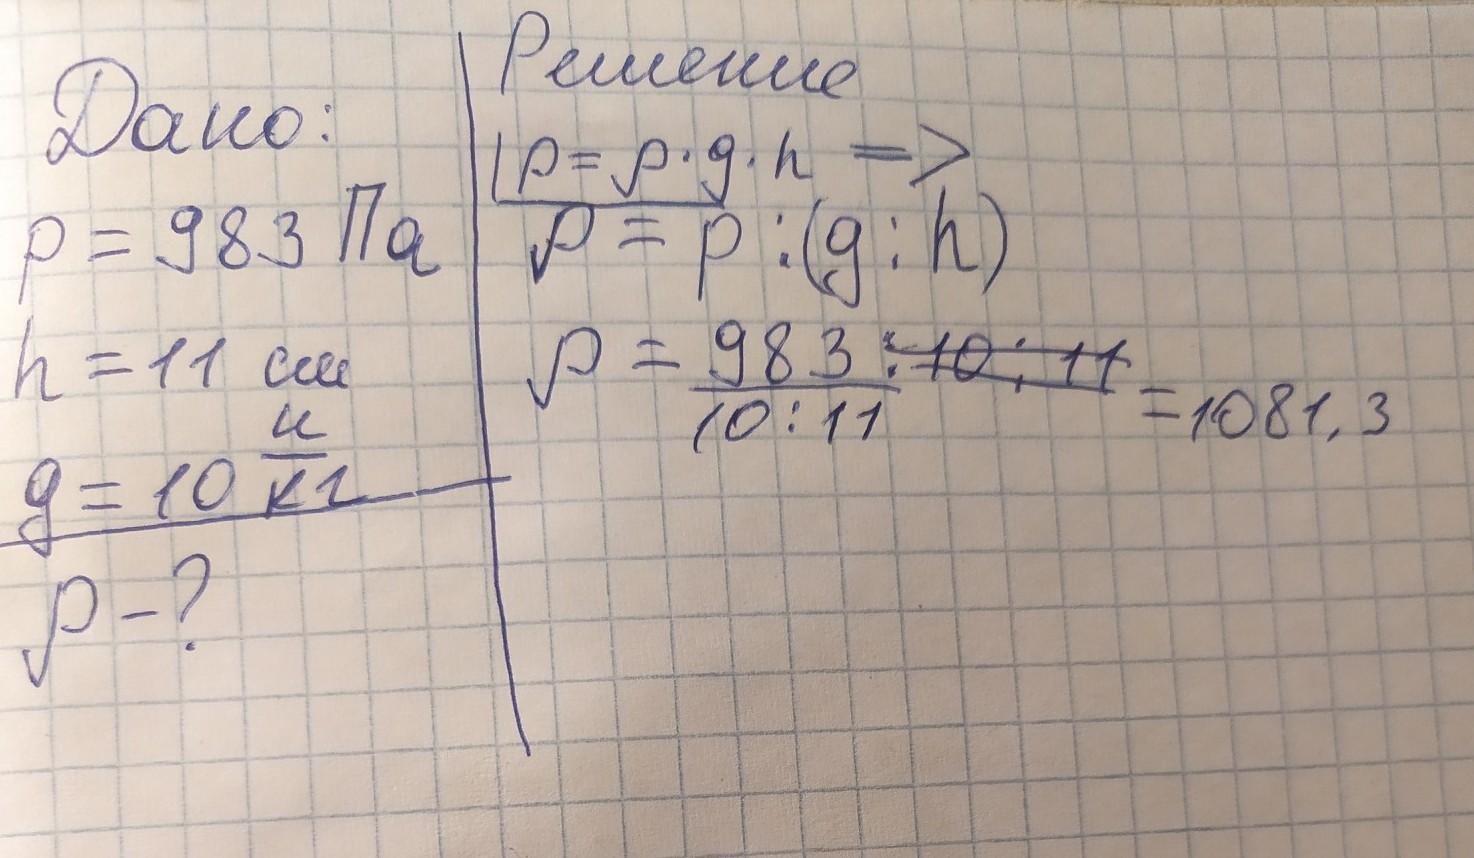 Дано:
p = 983 Па
h = 11 см
g = 10 н/кг
ρ - ?
Решение
p = ρ · g · h =>
ρ = p : (g : h)
ρ = 983 : 10 : 11
10 : 11
= 1081,3